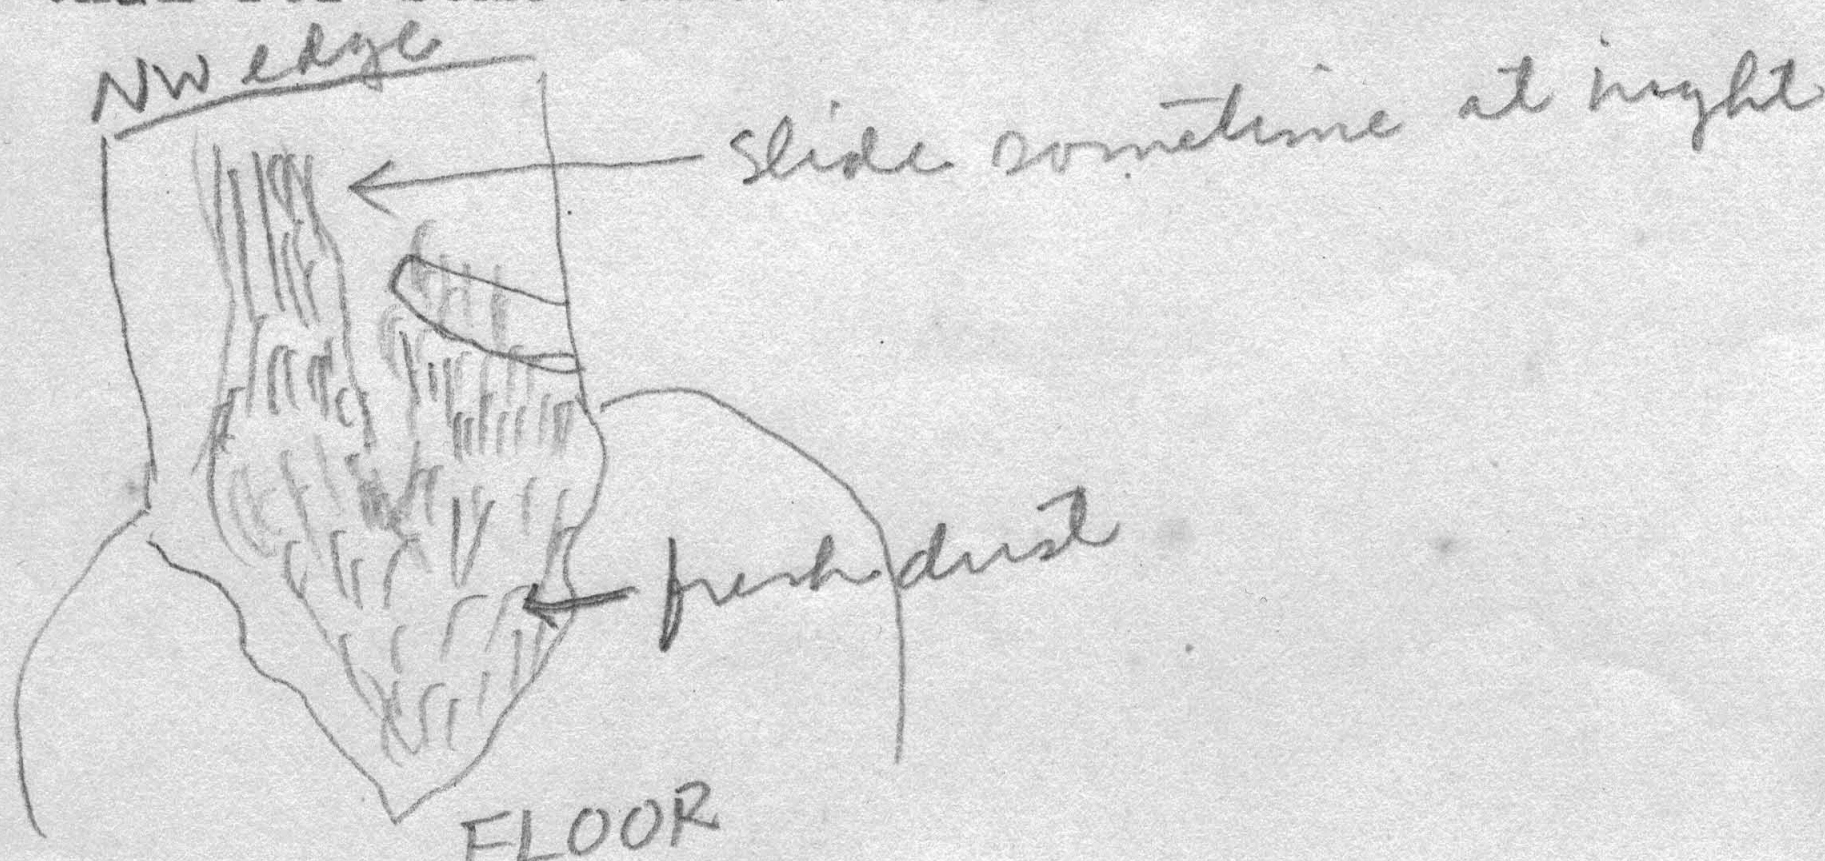 NW edge
slide sometime at night
fresh dust
FLOOR